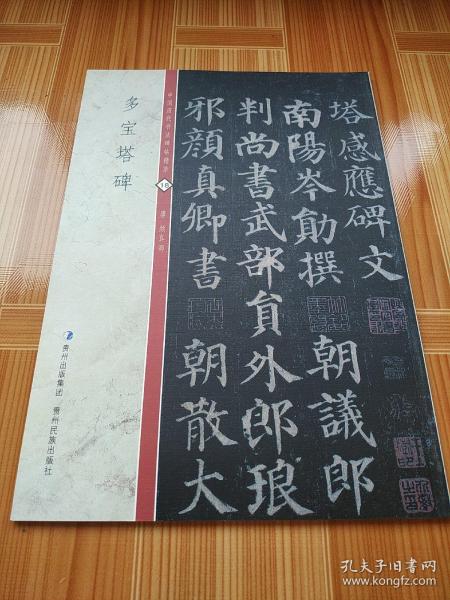 多宝塔碑
中国历代书法碑帖精粹
18
唐 颜真卿
贵州出版集团 贵州民族出版社
塔感應碑文
南陽岑勛撰 朝議郎
判尚書武部員外郎琅
邪顏真卿書 朝散大
孔夫子旧书网
www.kongfz.com